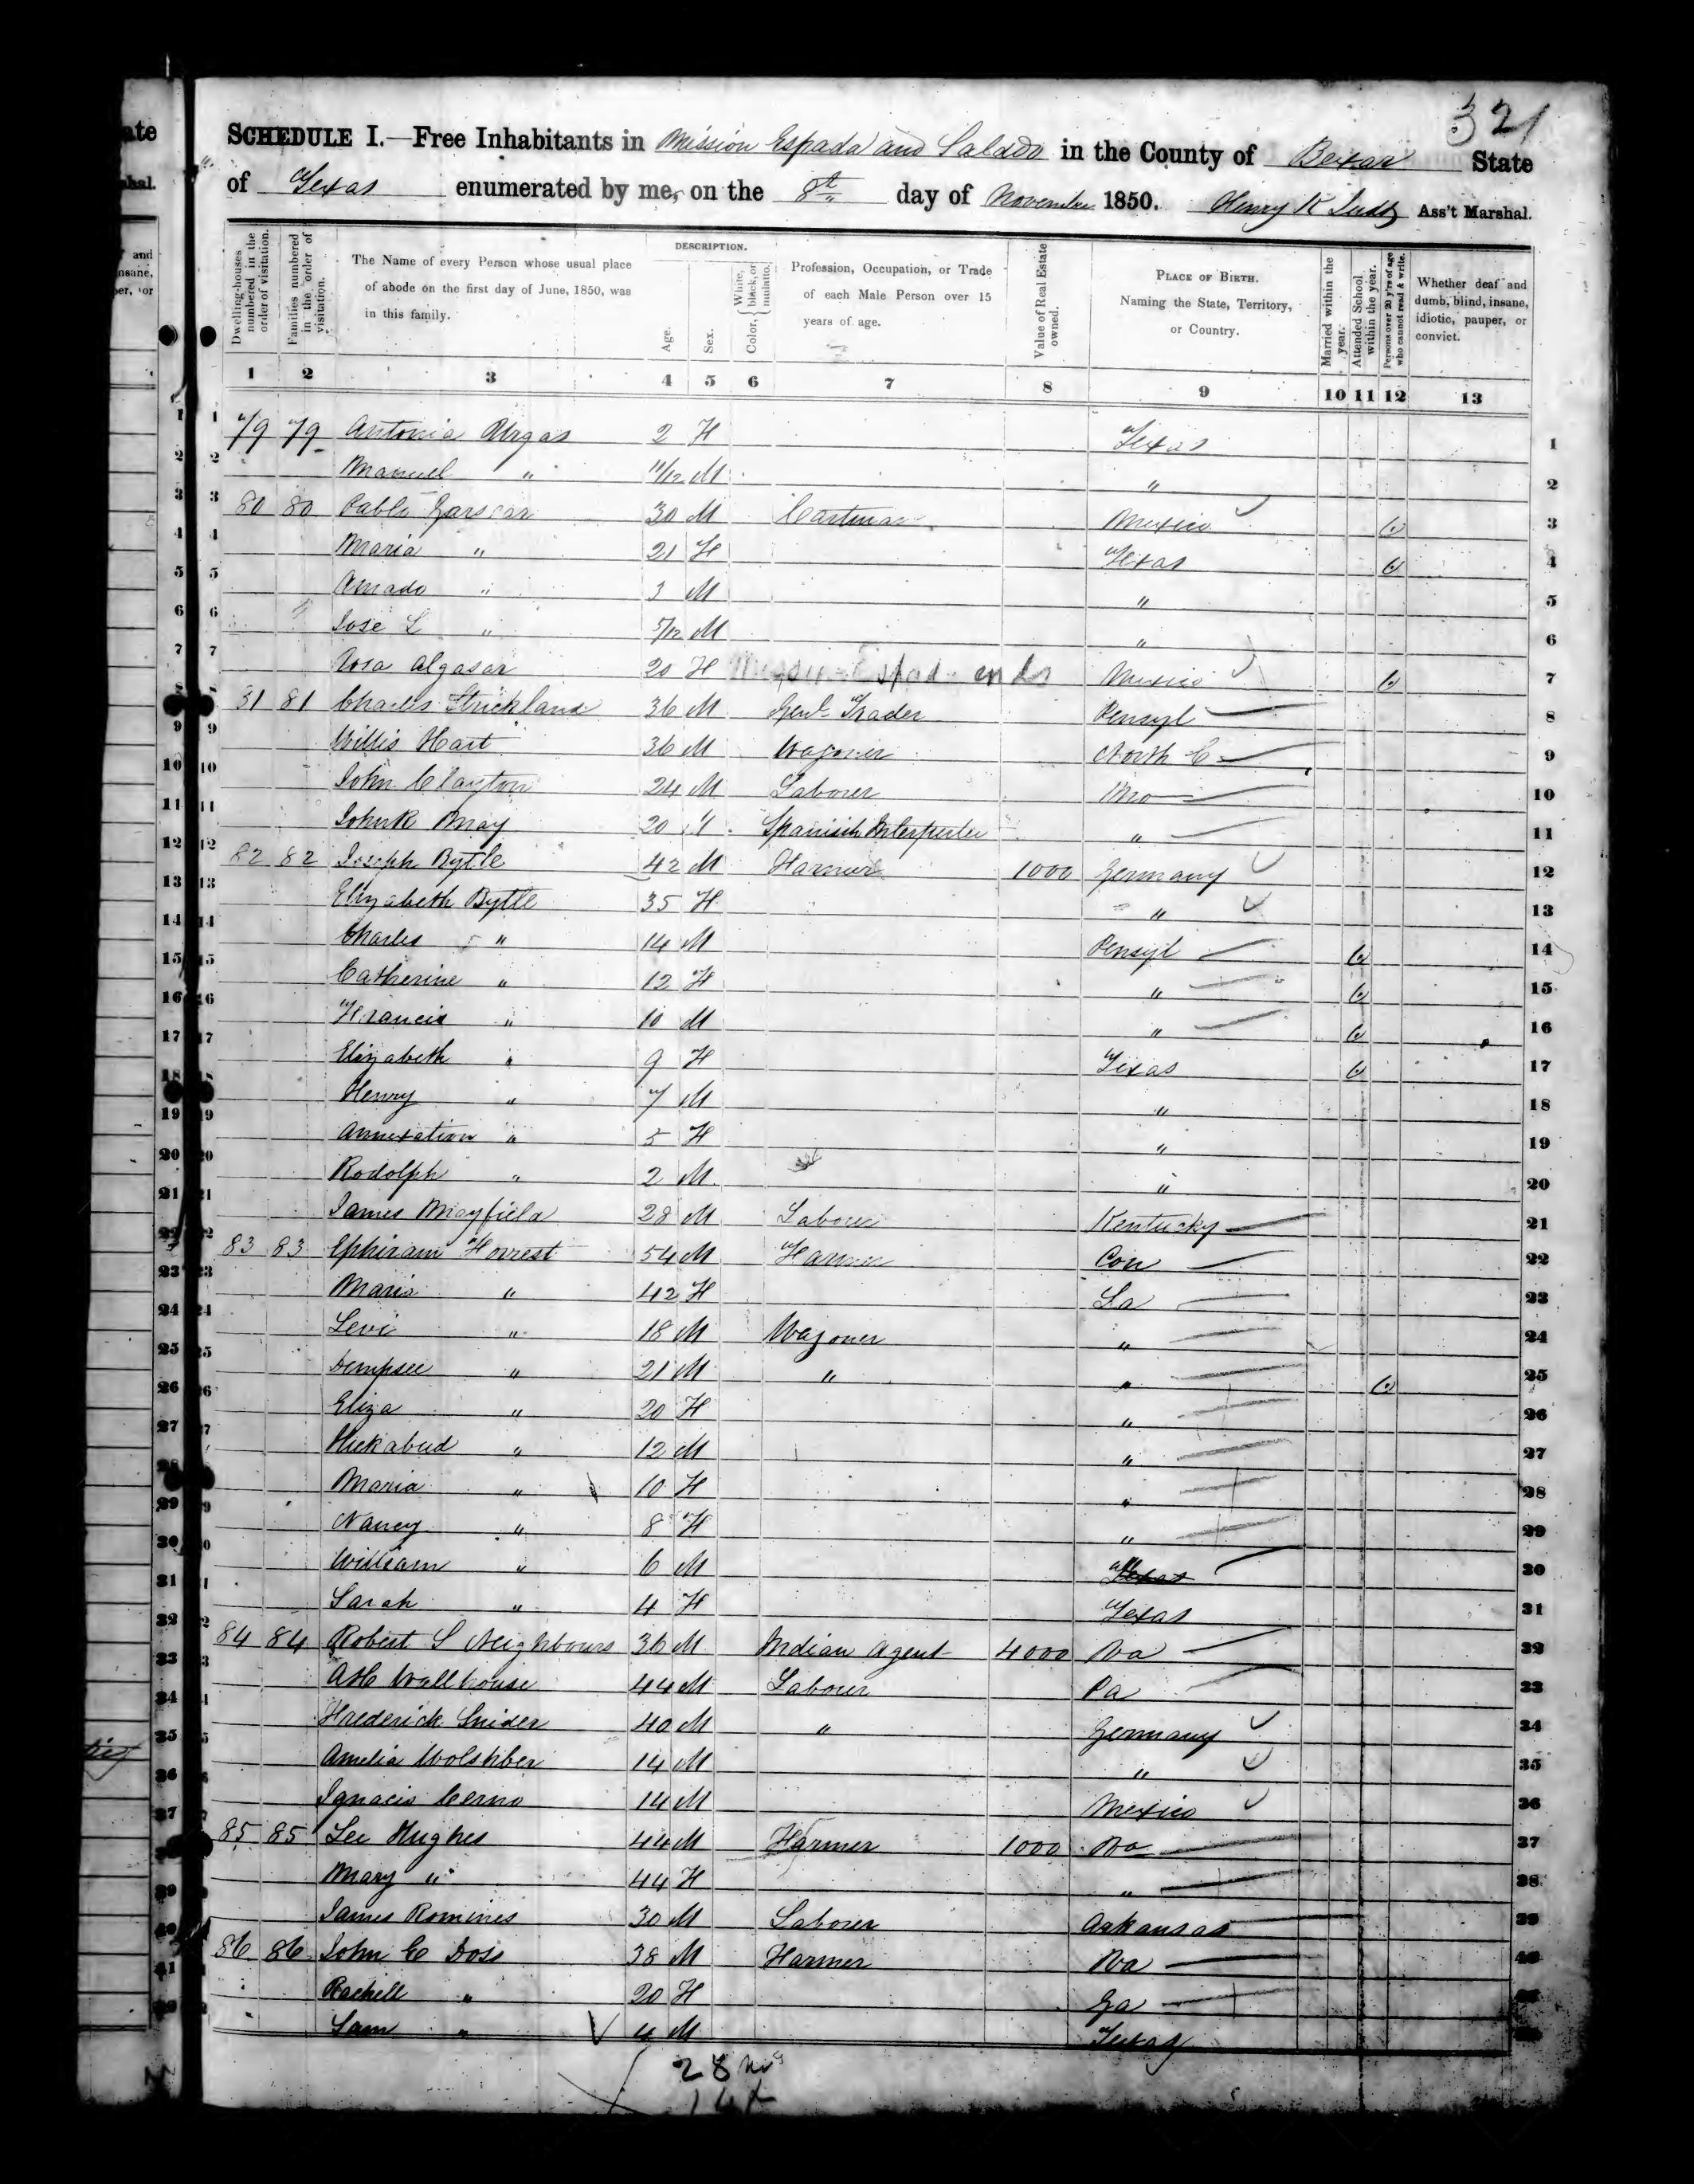 321
SCHEDULE I.—Free Inhabitants in Mission Espada and Salado in the County of Bexar State
of Texas enumerated by me, on the 8th day of November 1850. Henry K Judd Ass't Marshal.
Dwelling-houses numbered in the order of visitation.
Families numbered in the order of visitation.
The Name of every Person whose usual place of abode on the first day of June, 1850, was in this family.
DESCRIPTION.
Age.
Sex.
Color, { White, black, or mulatto.
Profession, Occupation, or Trade of each Male Person over 15 years of age.
Value of Real Estate owned.
PLACE OF BIRTH. Naming the State, Territory, or Country.
Married within the year.
Attended School within the year.
Persons over 20 y'rs of age who cannot read & write.
Whether deaf and dumb, blind, insane, idiotic, pauper, or convict.
1 2 3 4 5 6 7 8 9 10 11 12 13
1 79 79 Antonia 2 F Texas 1
2 Manuel " 11/12 M " 2
3 80 80 Pablo 30 M Cartman Mexico 3
4 Maria " 21 F Texas 4
5 Amado " 3 M " 5
6 Jose L " 5/12 M " 6
7 Rosa Algasar 20 F Mission Espada ends Mexico 7
8 81 81 Charles Strickland 36 M Genl Trader Pensyl 8
9 Willis Hart 36 M Wagoner North C 9
10 John Clayton 24 M Laborer Mo 10
11 John R May 20 " Spanish Interpreter " 11
12 82 82 Joseph Bytle 42 M Farmer 1000 Germany 12
13 Elizabeth Bytle 35 F " 13
14 Charles " 14 M Pensyl 14
15 Catherine " 12 F " 15
16 Francis " 10 M " 16
17 Elizabeth " 9 F Texas 17
18 Henry " 7 M " 18
19 Annexation " 5 F " 19
20 Rodolph " 2 M " 20
21 James Mayfield 28 M Laborer Kentucky 21
22 83 83 Ephiram Forrest 54 M Farmer Con 22
23 Maria " 42 F La 23
24 Levi " 18 M Wagoner " 24
25 Dempsee " 21 M " " 25
26 Eliza " 20 F " 26
27 Huckabud " 12 M " 27
28 Maria " 10 F " 28
29 Nancy " 8 F " 29
30 William " 6 M 30
31 Sarah " 4 F Texas 31
32 84 84 Robert S Neighbours 36 M Indian Agent 4000 Va 32
33 Wallhouse 44 M Laborer Pa 33
34 Frederick Snider 40 M " Germany 34
35 Amelia 14 M " 35
36 Ignacio Cerno 14 M Mexico 36
37 85 85 Lee Hughes 44 M Farmer 1000 Va 37
38 Mary " 44 F " 38
39 James Romines 30 M Laborer Arkansas 39
40 86 86 John E Doss 38 M Farmer Va 40
41 Rachell " 20 F Ga
42 Sam " 4 M Texas
28 m
14 f